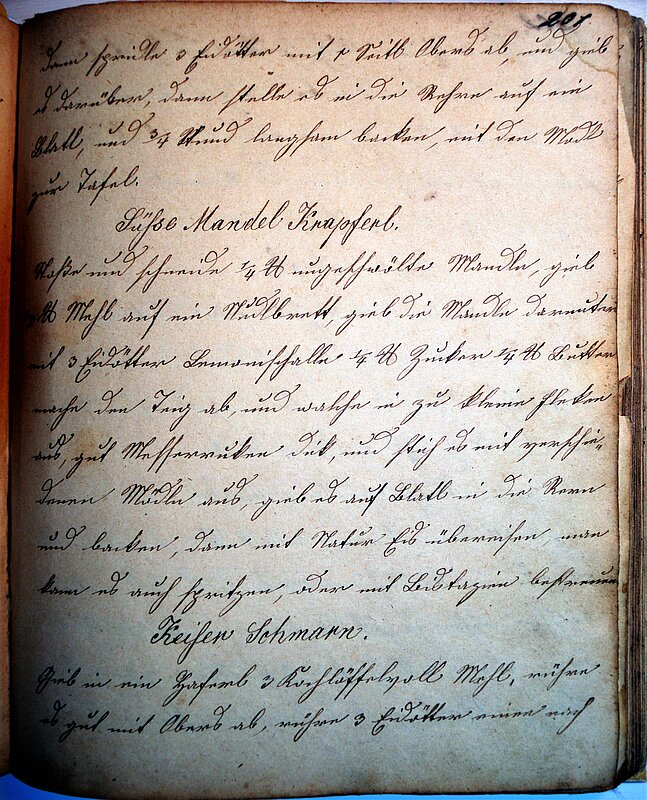 201
dann spridle 3 Eidötter mit 1 Seitl Obers ab, und gieb
es darüber, dann stelle es in die Rehre auf ein
Blatl, und 3/4 Stund langsam backen, mit den Modl
zur Tafel.
Süßse Mandel Knapferl.
Stoße und schneide 1/4 ℔ ungeschwölte Mandln, gieb
℔ Mehl auf ein Nudlbrett, gieb die Mandln darunter
mit 3 Eidötter Lemonischalle 1/4 ℔ Zucker 1/4 ℔ Butter
mache den Teig ab, und walche in zu kleine Fleken
aus, gut Messerruken dik, und stich es mit verschie-
denen Mödln aus, gieb es auf Blatl in die Rern
und backen, dann mit Natur Eis übereisen, man
kann es auch spritzen, oder mit Bistazien bestreuen
Keiser Schmarn.
Gieb in ein Haferl 3 Kochlöffelvoll Mehl, rühre
es gut mit Obers ab, rühre 3 Eidötter einen nach